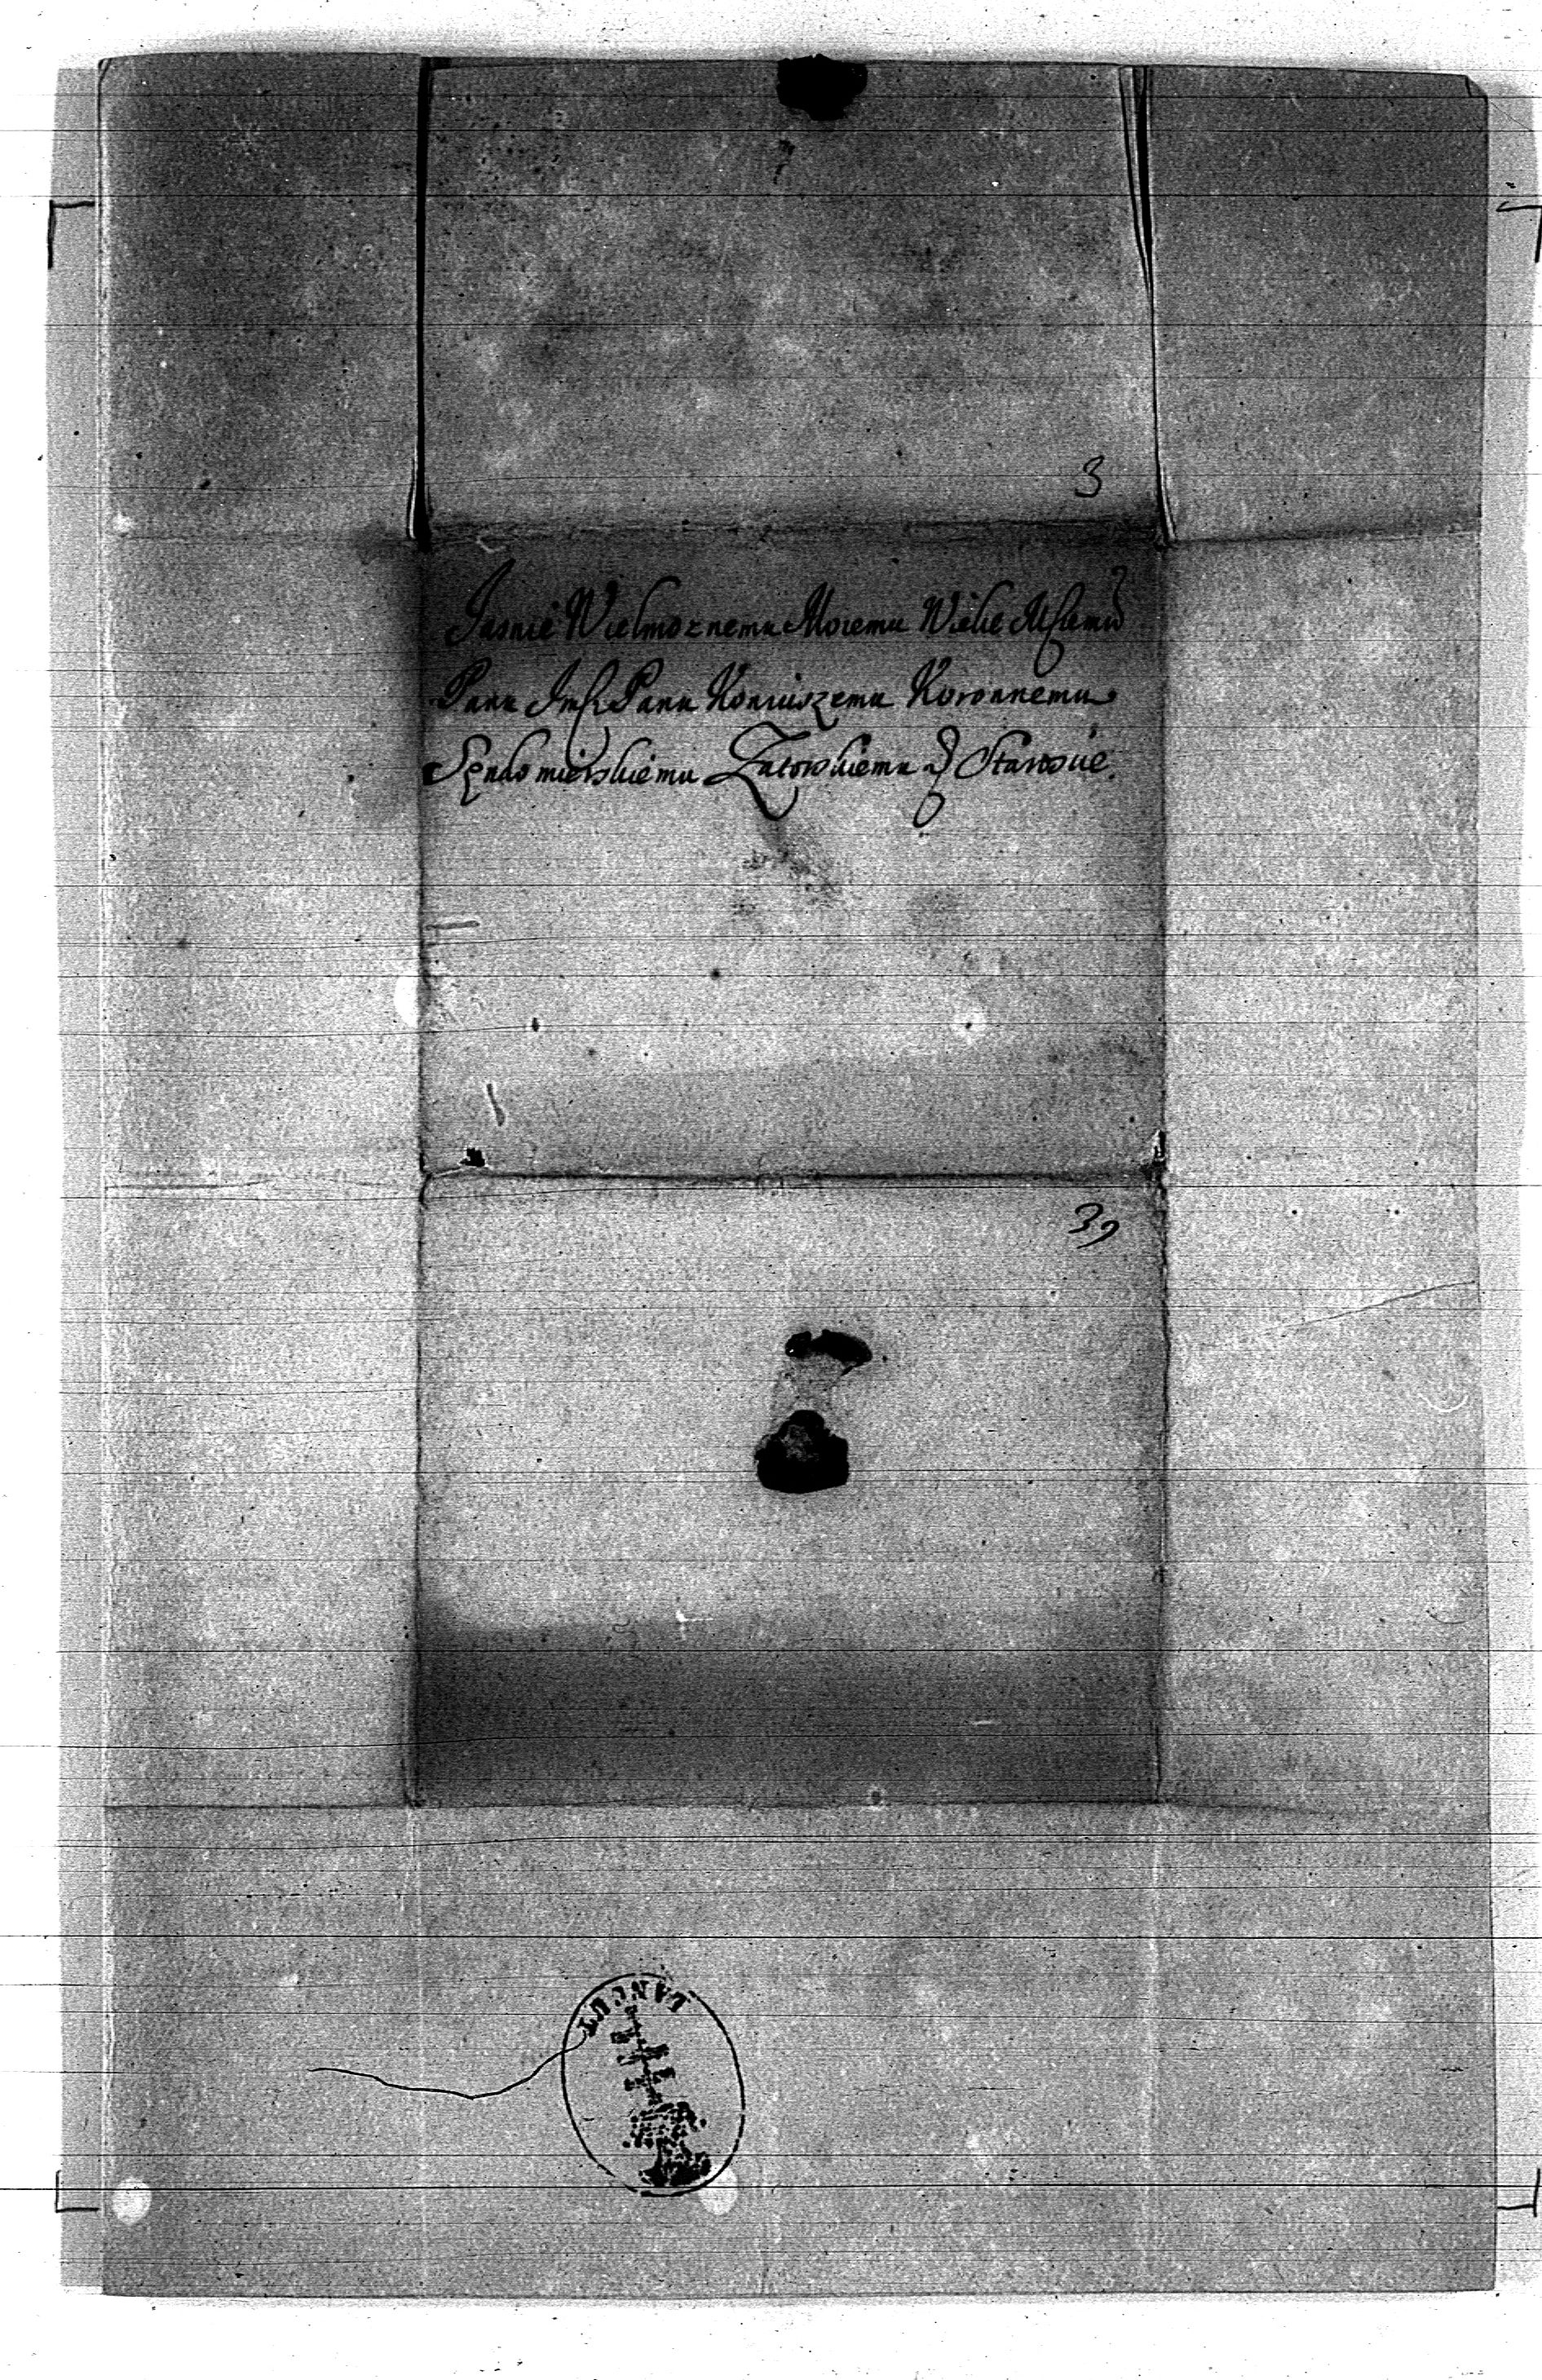 3
Jasnie Wielmoznemu Moiemu Wielce Mscemu
Panu Jmsci Panu Koniuszemu Koronnemu
Sęndomierskiemu Zatorskiemu &c Staroscie.
39
LANCUT